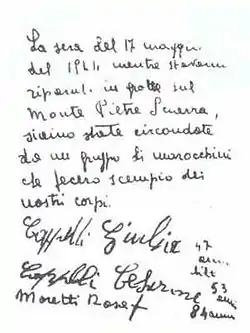 La sera del 17 maggio
del 1944 mentre stavamo
riposati in grotta sul
Monte Pietre Scurra,
siamo state circondate
da un gruppo di marocchini
che fecero scempio dei
nostri corpi.
Coppelli Giulia 47
anni
Coppelli Cesarina 53
anni
Moretti Rosa 84 anni